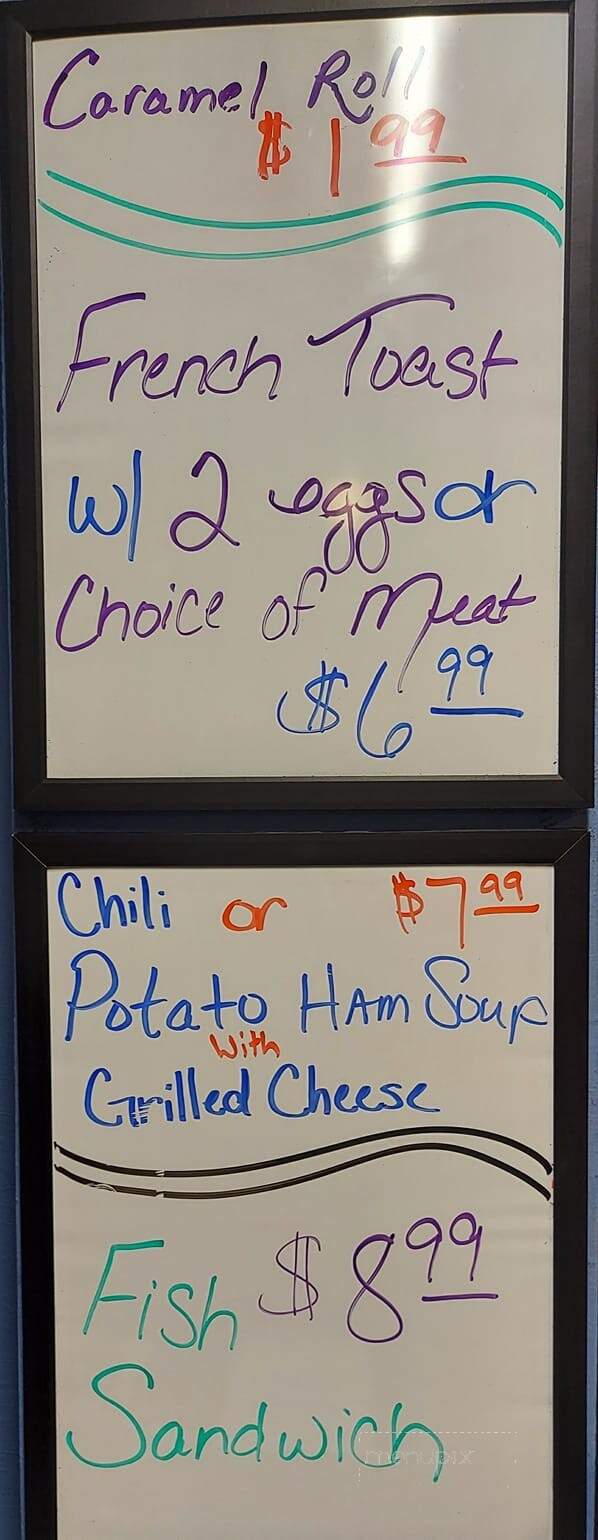 Caramel Roll
$1 99
French Toast
w/ 2 eggs or
Choice of Meat
$6 99
Chili or $7 99
Potato HAm Soup
With
Grilled Cheese
Fish $8 99
Sandwich
menupix